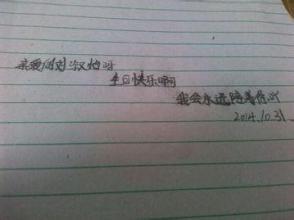 亲爱的刘淑怡呀
生日快乐啊
我会永远陪着你哦
2014.10.31